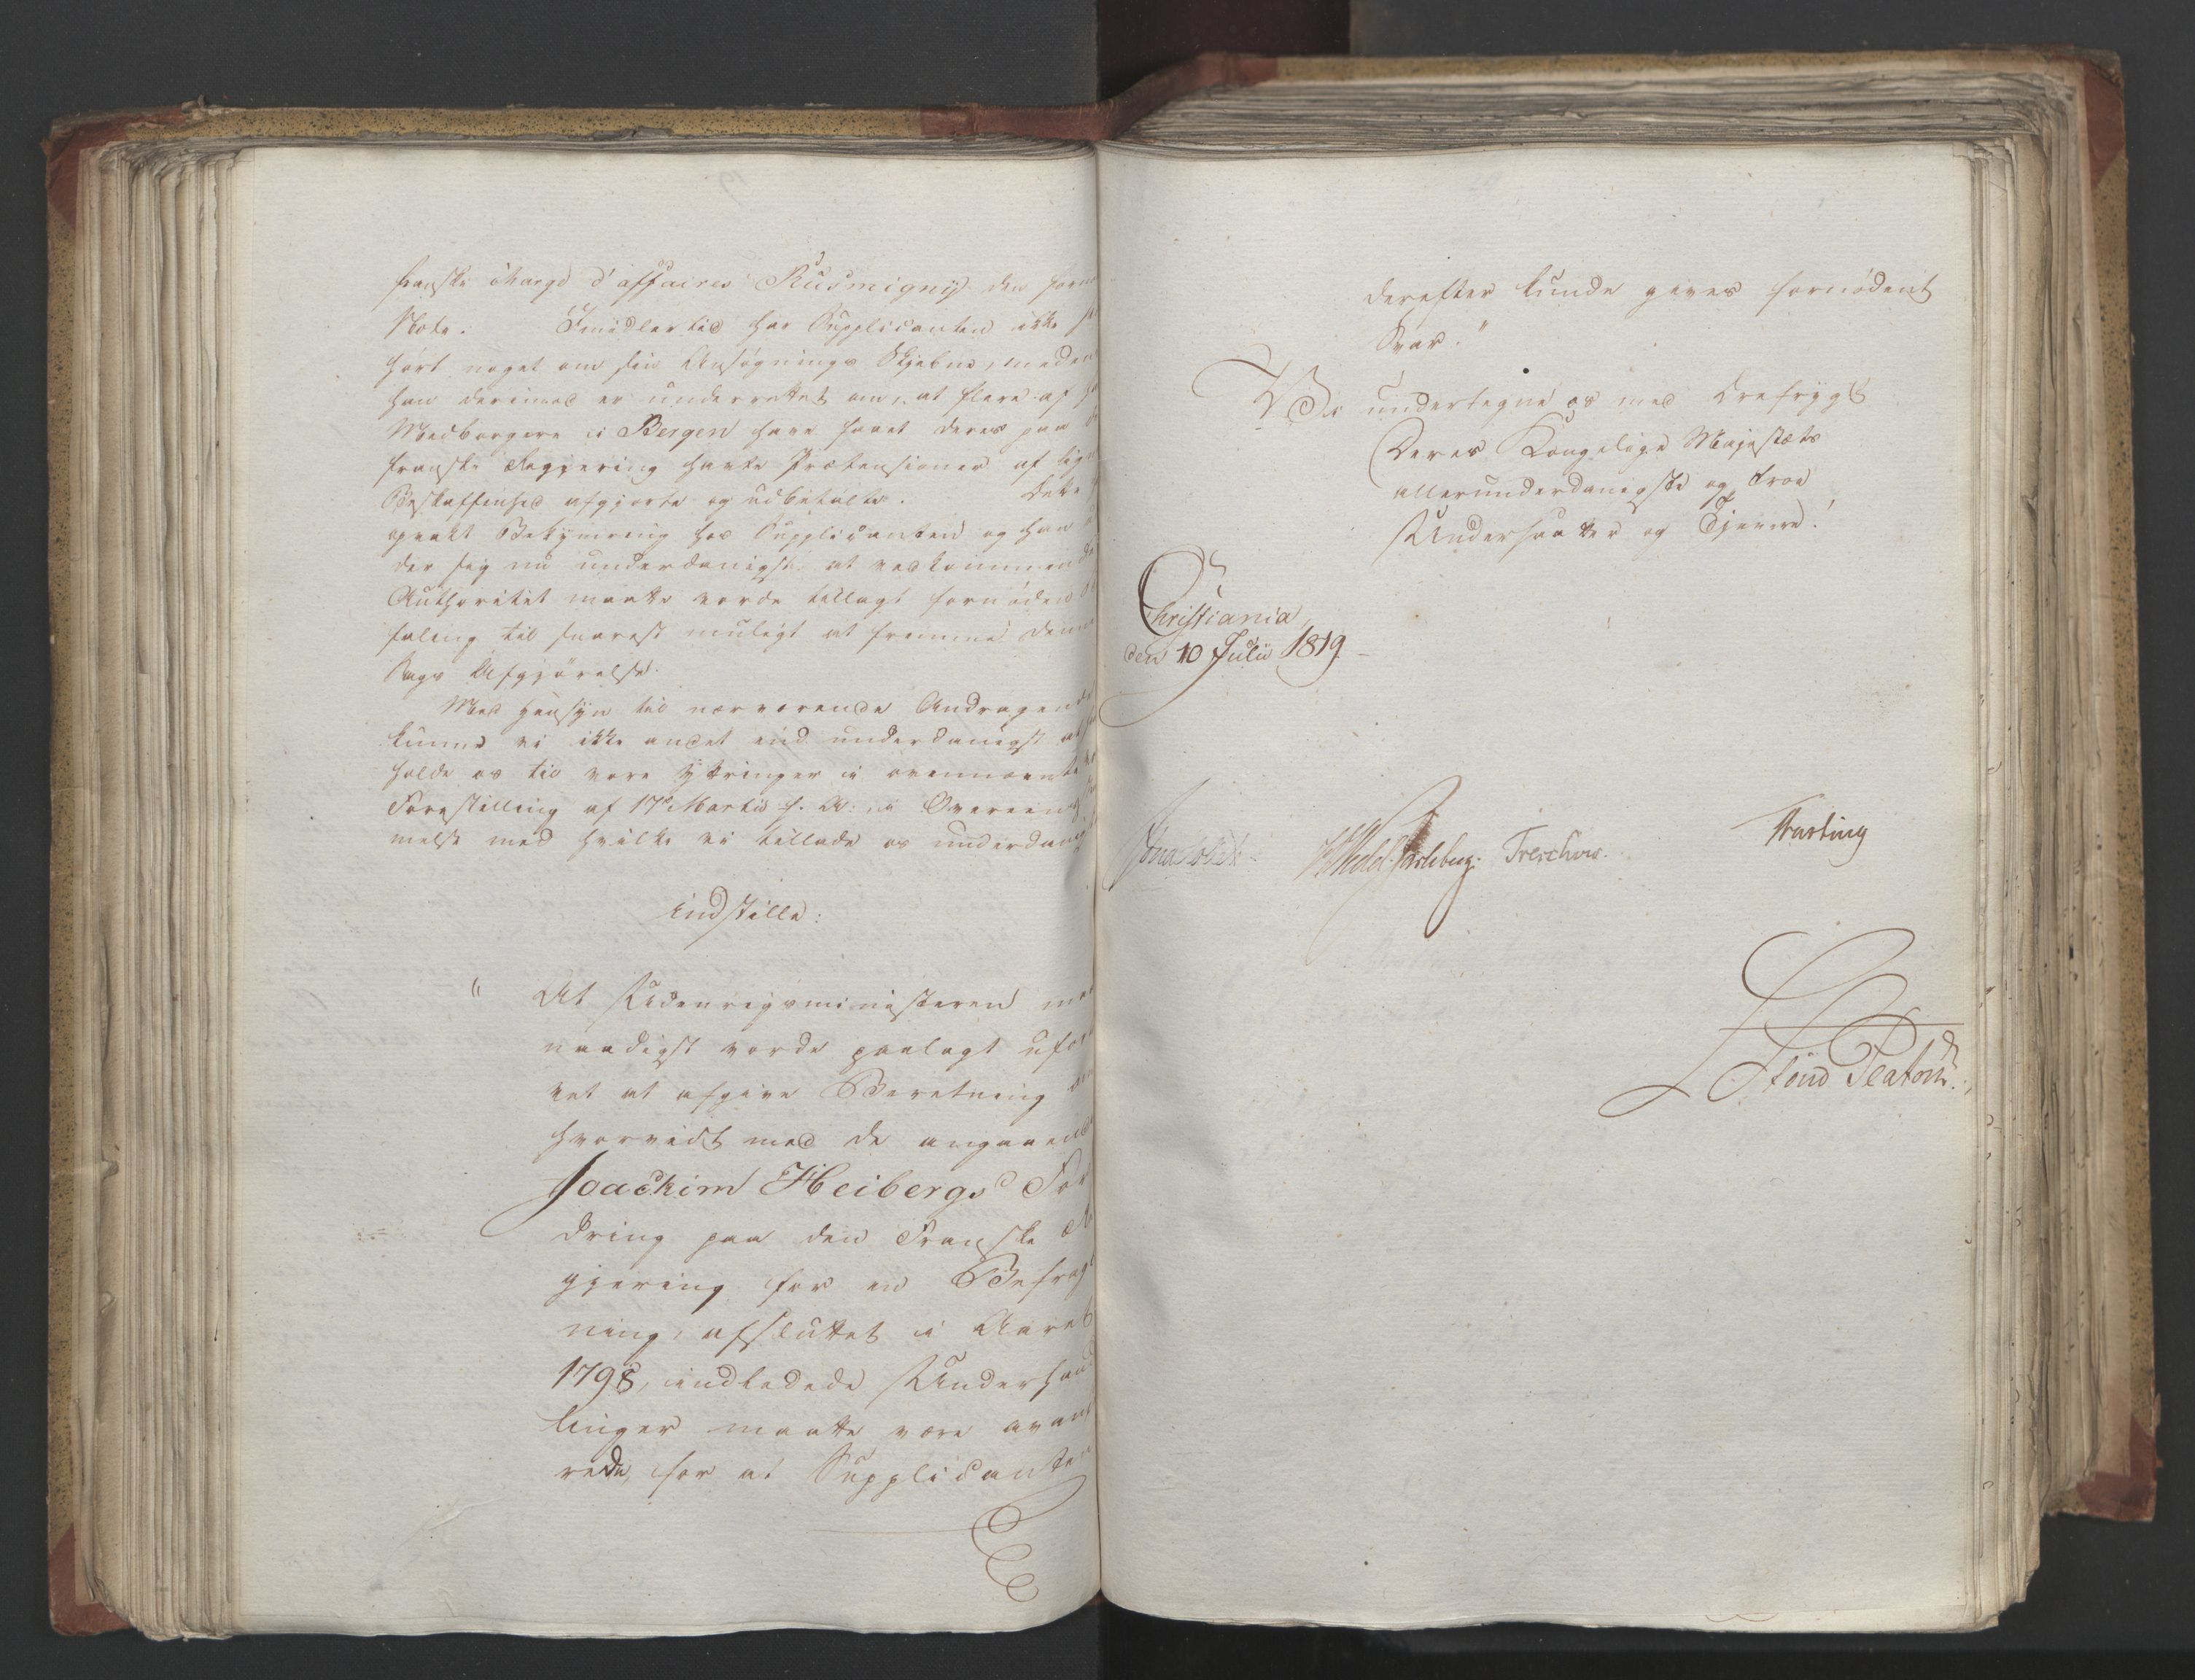 franske chargé d'affaires Rusmigny den
Note. Imidlertid har Supplicanten ikke
hørt noget om sin Ansøgnings Skjebne, meden
han derimod er underrettet om, at flere af
Medborgere i Bergen have faaet deres paa
franske Regjering havte Prætensioner af lig
Beskaffenhed afgjorte og udbetalte. Dette
vakt Bekymring hos Supplicanten og han
der sig nu underdanigst at vedkommen
Authoritet maatte vorde tillagt fornøden
faling til snarest muligt at fremme denne
Sags Afgjørelse.
Med Hensyn til nærværende Andragen
kunne vi ikke andet end underdanigst at
holde os til vore Yttringer i ovennævnte
Forestilling af 17de Martii f. A. i Overeens
melse med hvilke vi tillade os underdanigst
indstille:
" At Udenrigsministeren maa
naadigst vorde paalagt ufor
vet at afgive Beretning om
hvorvidt med de angaaende
Joachim Heibergs For
dring paa den Franske Re
gjering for en Befragt
ning, afsluttet i Aaret
1798, indledede Underhand
linger maatte være avance
rede, for at Supplicanten
derefter kunde gives fornødent
Svar."
Vi undertegne os med Ærefrygt
Deres Kongelige Majestæts
allerunderdanigste og troe
Undersaatter og Tjenere!
Christiania,
den 10 Julii 1819.
Jonas Collett. HWedel Jarlsberg. Treschow. Krohg